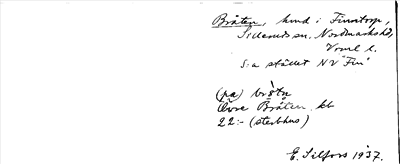 Bråten, hmd i Finntorp,
Silleruds sn, Nordmarks hd,
Vrml l.
S:a stället NV "Fin"
(pa) bròtn
Övre Bråten kb
22:- (sterbhus)
E. Silfors 1937.